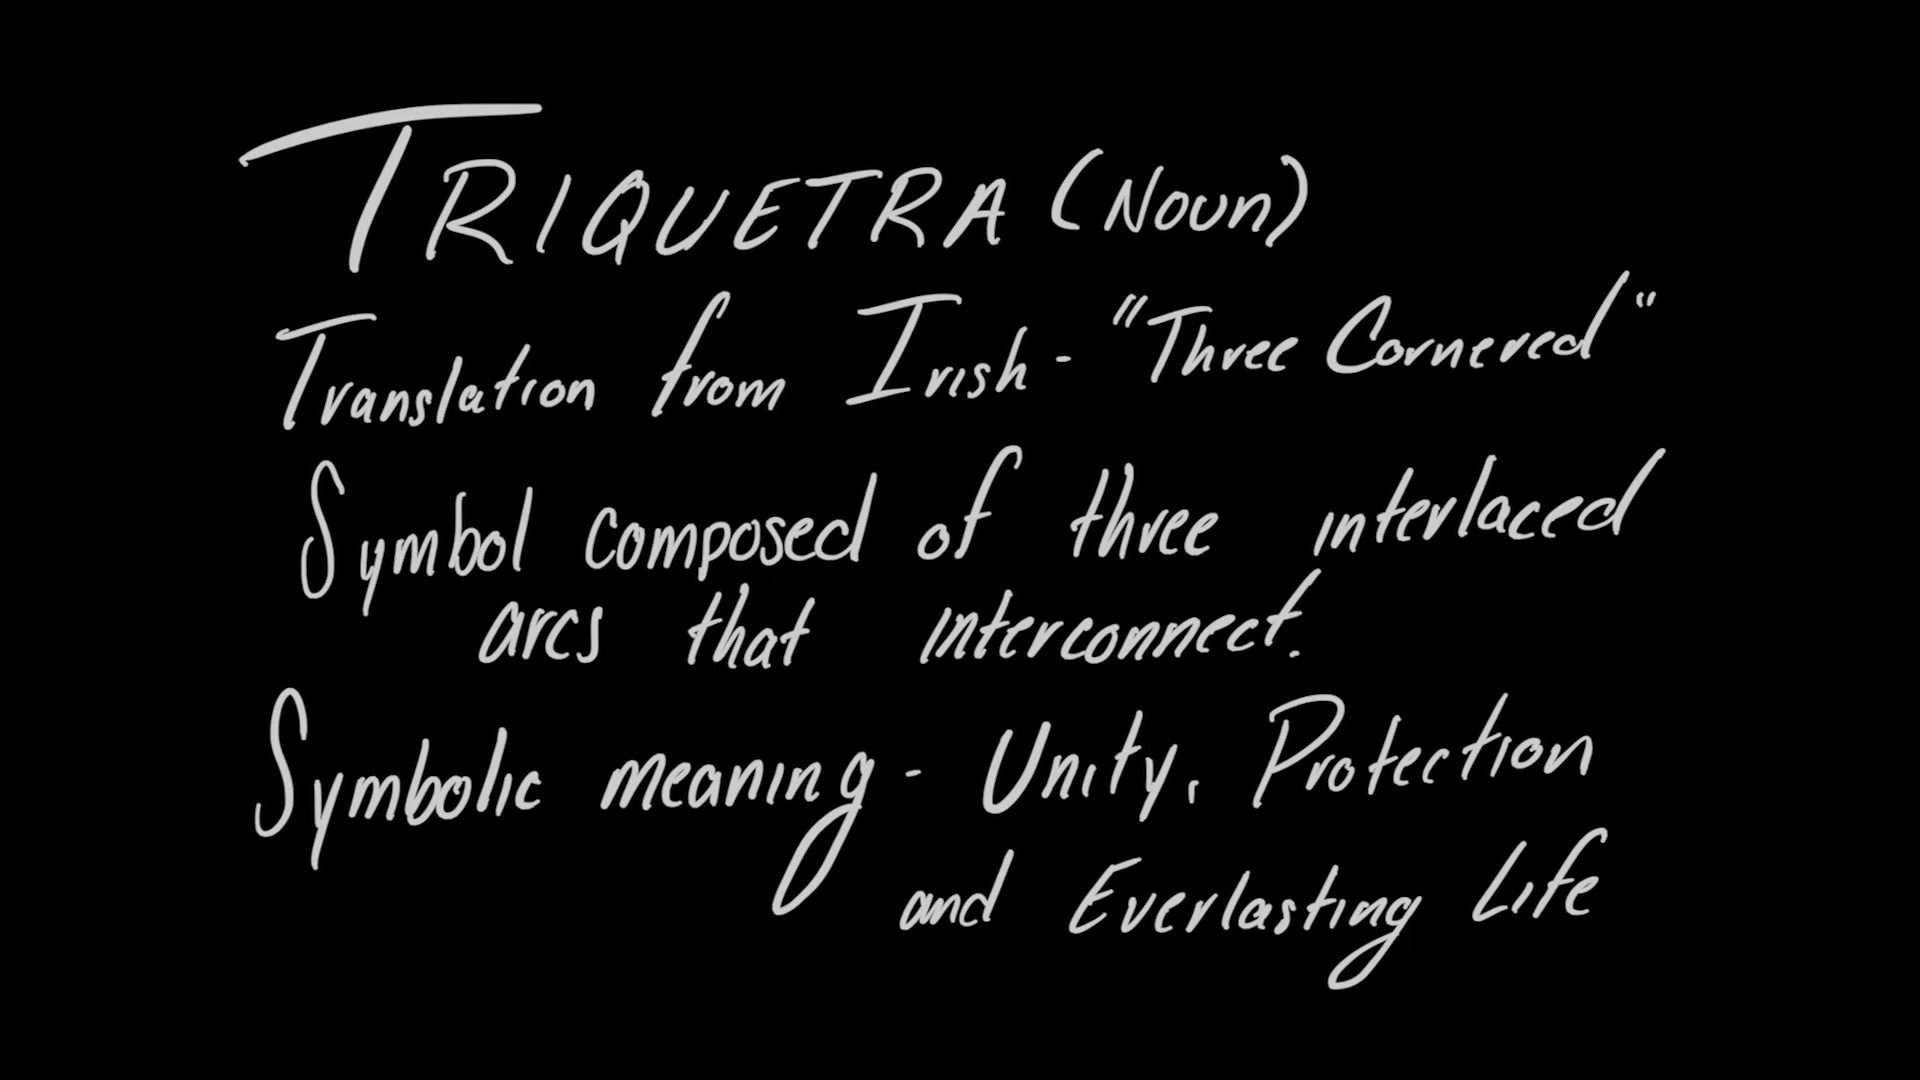 TRIQUETRA (Noun)
Translation from Irish - "Three Cornered"
Symbol composed of three interlaced
arcs that interconnect.
Symbolic meaning - Unity, Protection
and Everlasting Life